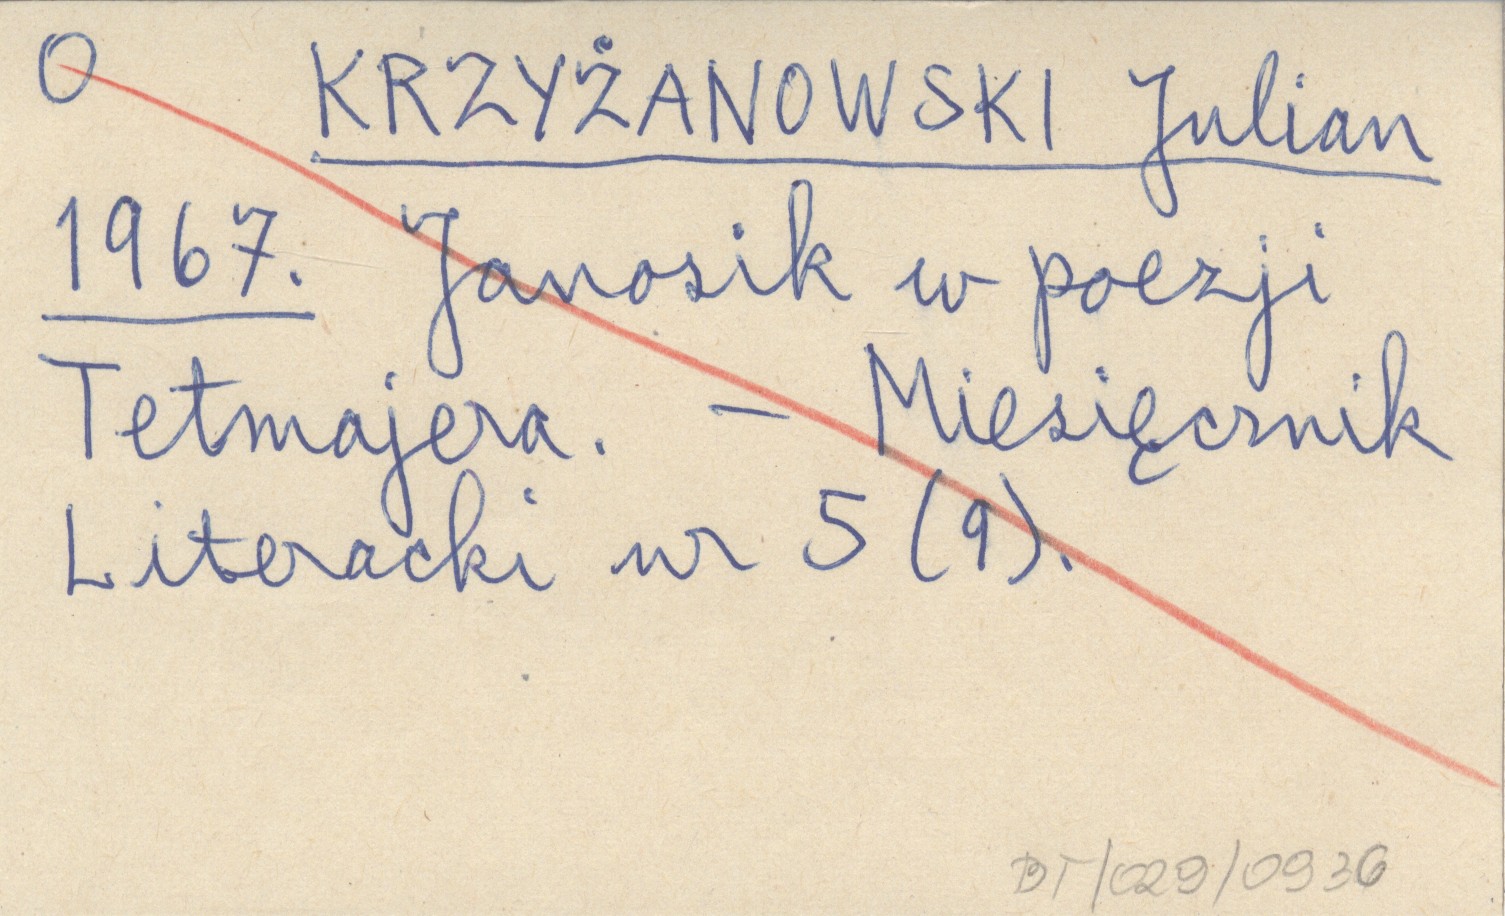 O KRZYŻANOWSKI Julian
1967. Janosik w poezji
Tetmajera. – Miesięcznik
Literacki nr 5 (9).
BT/029/0936